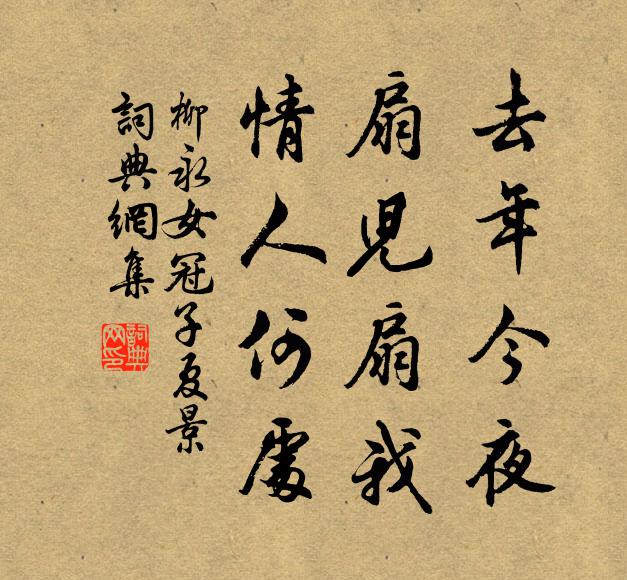 去年今夜
扇兒扇我
情人何處
柳永女冠子夏景
詞典網集
詞典网印